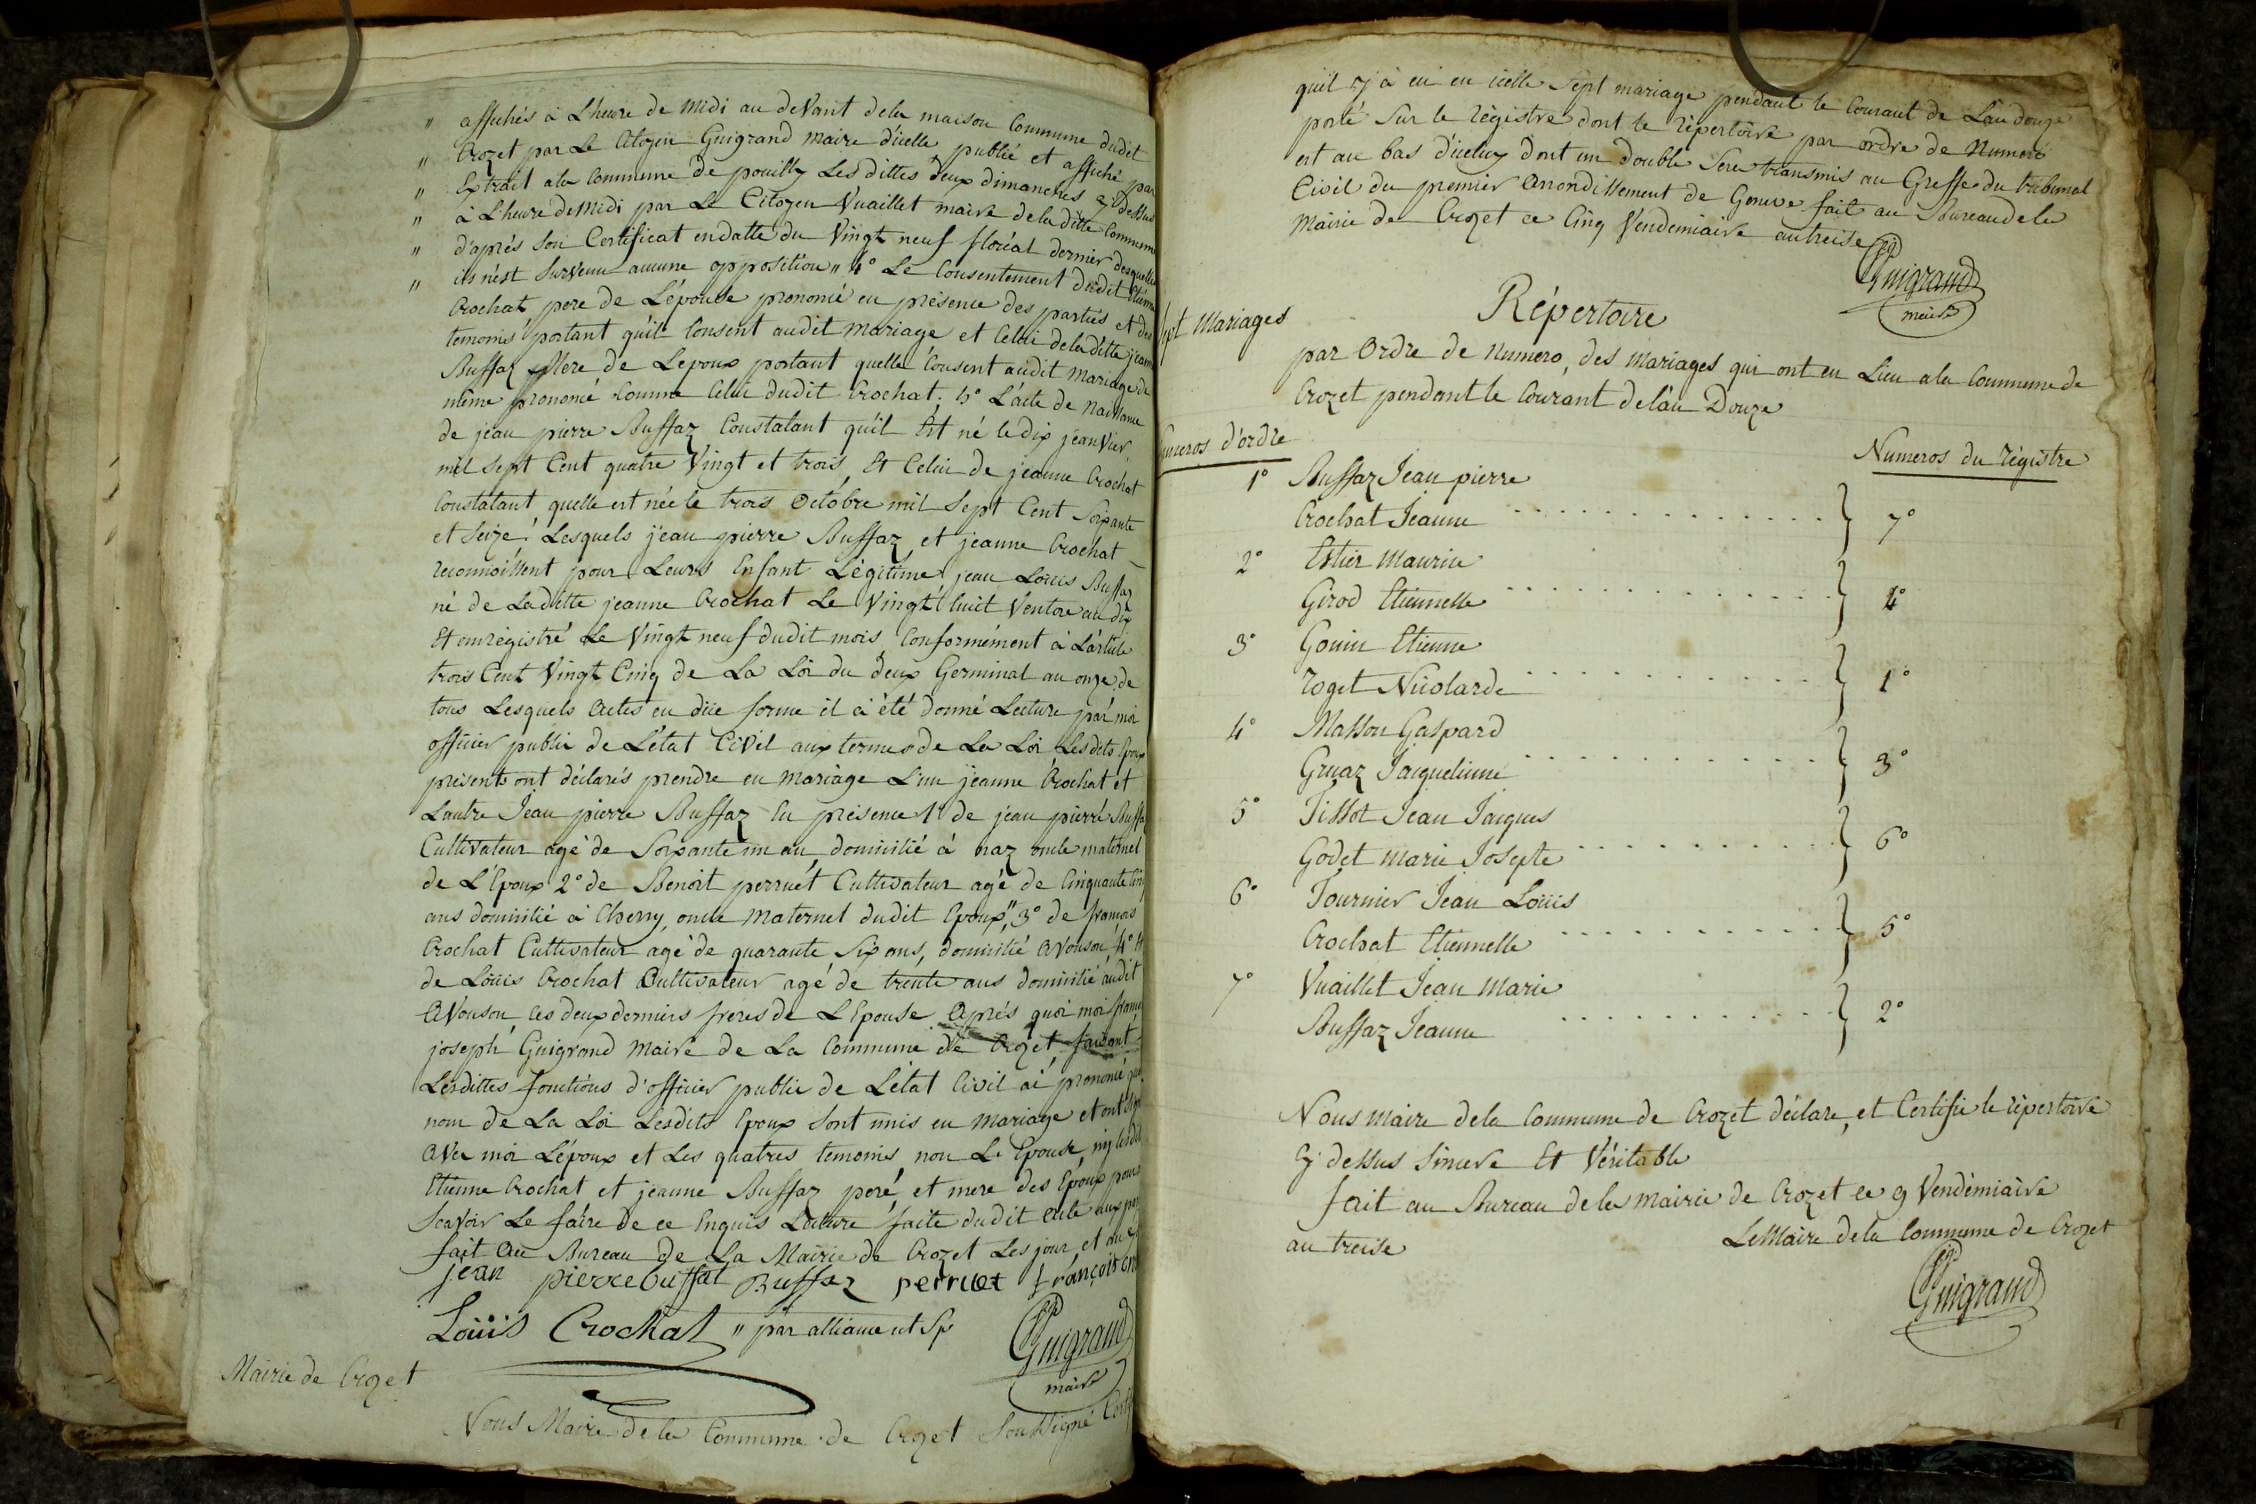 " affichés à L'heure de Midi au deVant dela maison Commune dudit
" Crozet par Le Citoyen Guigrand maire d'icelle publié et affiché par
" Extrait ala Commune de pouilly Les dittes deux dimanches cy dessus
" à L'heure de Midi par Le Citoyen Vuaillet maire de la ditte Commune
" d'aprés Son Certificat endatte du Vingt neuf floréal dernier desquelles
" il n'est Survenu aucune opposition " 4° Le Consentement dudit Etienne
Crochat pere de L'épouse prononcé en présence des parties et des
temoins portant qu'il Consent audit mariage et Celui dela ditte jeanne
Buffaz Mere de Lepoux portant quelle Consent audit Mariage de
même prononcé comme Celui dudit Crochat. 5° L'acte de Naissance
de jean pierre Buffaz Constatant qu'il Est né le dix jeanVier
mil Sept Cent quatre Vingt et trois, Et Celui de jeanne Crochat
Constatant quelle est née le trois Octobre mil Sept Cent Soixante
et Seize. Lesquels jean pierre Buffaz et jeanne Crochat
reconnoissent pour Leurs Enfant Légitime jean Loüis Buffaz
né de Laditte jeanne Crochat Le Vingt huit Ventose an dix
Et enregistré Le Vingt neuf dudit mois, Conformément à L'article
trois Cent Vingt Cinq de La Loi du deux Germinal an onze, de
tous Lesquels Actes en düe forme il a été donné Lecture par moi
officier public de L'état CiVil aux termes de La Loi Lesdits Epoux
présents ont déclarés prendre en Mariage L'un jeanne Crochat et
Lautre Jean pierre Buffaz En présence 1° de jean pierre Buffaz
Cultivateur agé de Soixante un an, domicilié à naz oncle maternel
de L'Epoux 2° de Benoit perruet Cultivateur agé de Cinquante Cinq
ans domicilié à Chevry, oncle Maternel dudit Epoux " 3° de françois
Crochat Cultivateur agé de quarante Six ans, domicilié aVouson, 4° Et
de Loüis Crochat Cultivateur agé de trente ans domicilié audit
aVouson, Ces deux derniers freres de L'Epouse Aprés quoi moi françois
joseph Guigrand Maire de La Commune de Crozet faisant
Lesdittes fonctions d'officier public de L'état Civil ai prononcé qu'au
nom de La Loi Lesdits Epoux Sont unis en Mariage et ont signé
aVec moi L'époux et Les quatres temoins non Le Epouse, ny Lesdits
Etienne Crochat et jeanne Buffaz peré et mere des Epoux pour
ScaVoir Le faire de ce Enquis Lecture faite dudit acte aux
fait au Bureau de La Mairie de Crozet Les jour et an
jean pierre buffat Buffaz perruet françois
Loüis Crochat " par alliance
Guigrand
maire
Mairie de Crozet
Nous Maire dela Commune de Crozet Soussigné
quil y à eu en icelle Sept mariage pendant le Courant de Lan douze
porté Sur le régistre dont le répertoire par ordre de Numero
est au bas d'icelui dont un double Sera transmis au Greffe du tribunal
Civil du premier Arrondissement de Geneve fait au Bureau dela
Mairie de Crozet ce Cinq Vendemiaire an treise
Guigrand
maire
Sept Mariages
Répertoire
par Ordre de Numero, des Mariages qui ont eu Lieu ala Commune de
Crozet pendant le Courant de l'an Douze
Numeros d'ordre
Numeros du régistre
1° Buffaz Jean pierre
Crochat Jeanne 7°
2° Estier Maurice
Girod Etiennette 4°
3° Gonin Etienne
roget Nicolarde 1°
4° Masson Gaspard
Gruaz Jacqueline 3°
5° Tissot Jean Jacques
Godet marie Josephe 6°
6° Fournier Jean Loüis
Crochat Etiennette 5°
7° Vuaillet Jean Marie
Buffaz Jeanne 2°
Nous maire dela Commune de Crozet déclare, et Certifie le répertoire
Cy dessus Sincere Et Véritable
fait au Bureau dela Mairie de Crozet ce 9 Vendémiaire
an treise
Le Maire dela Commune de Crozet
Guigrand